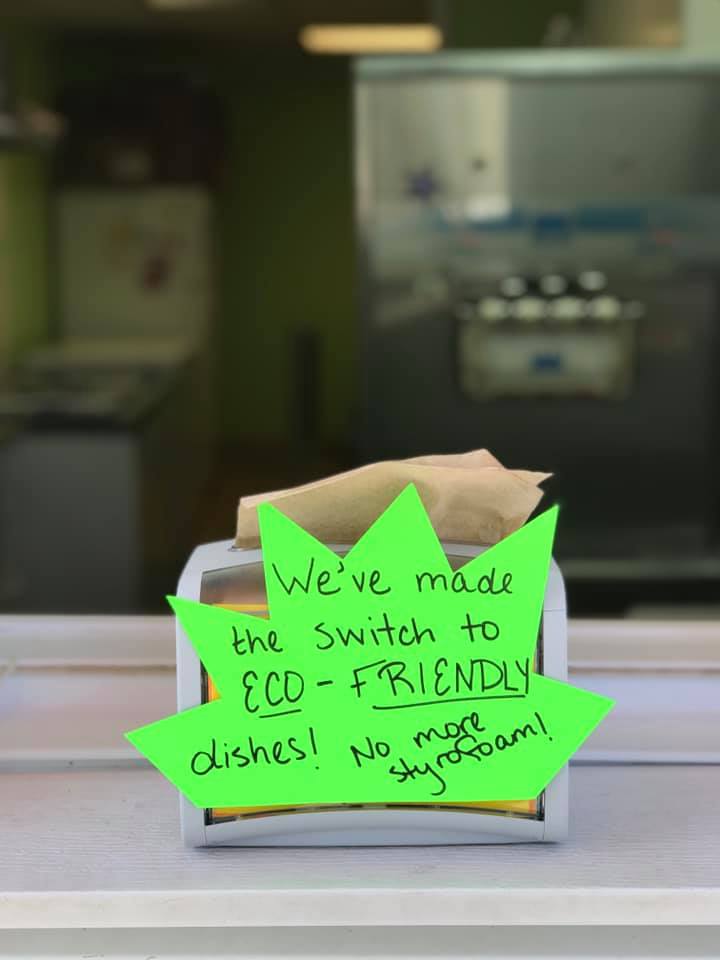 We've made
the switch to
ECO - FRIENDLY
dishes! No more
styrofoam!